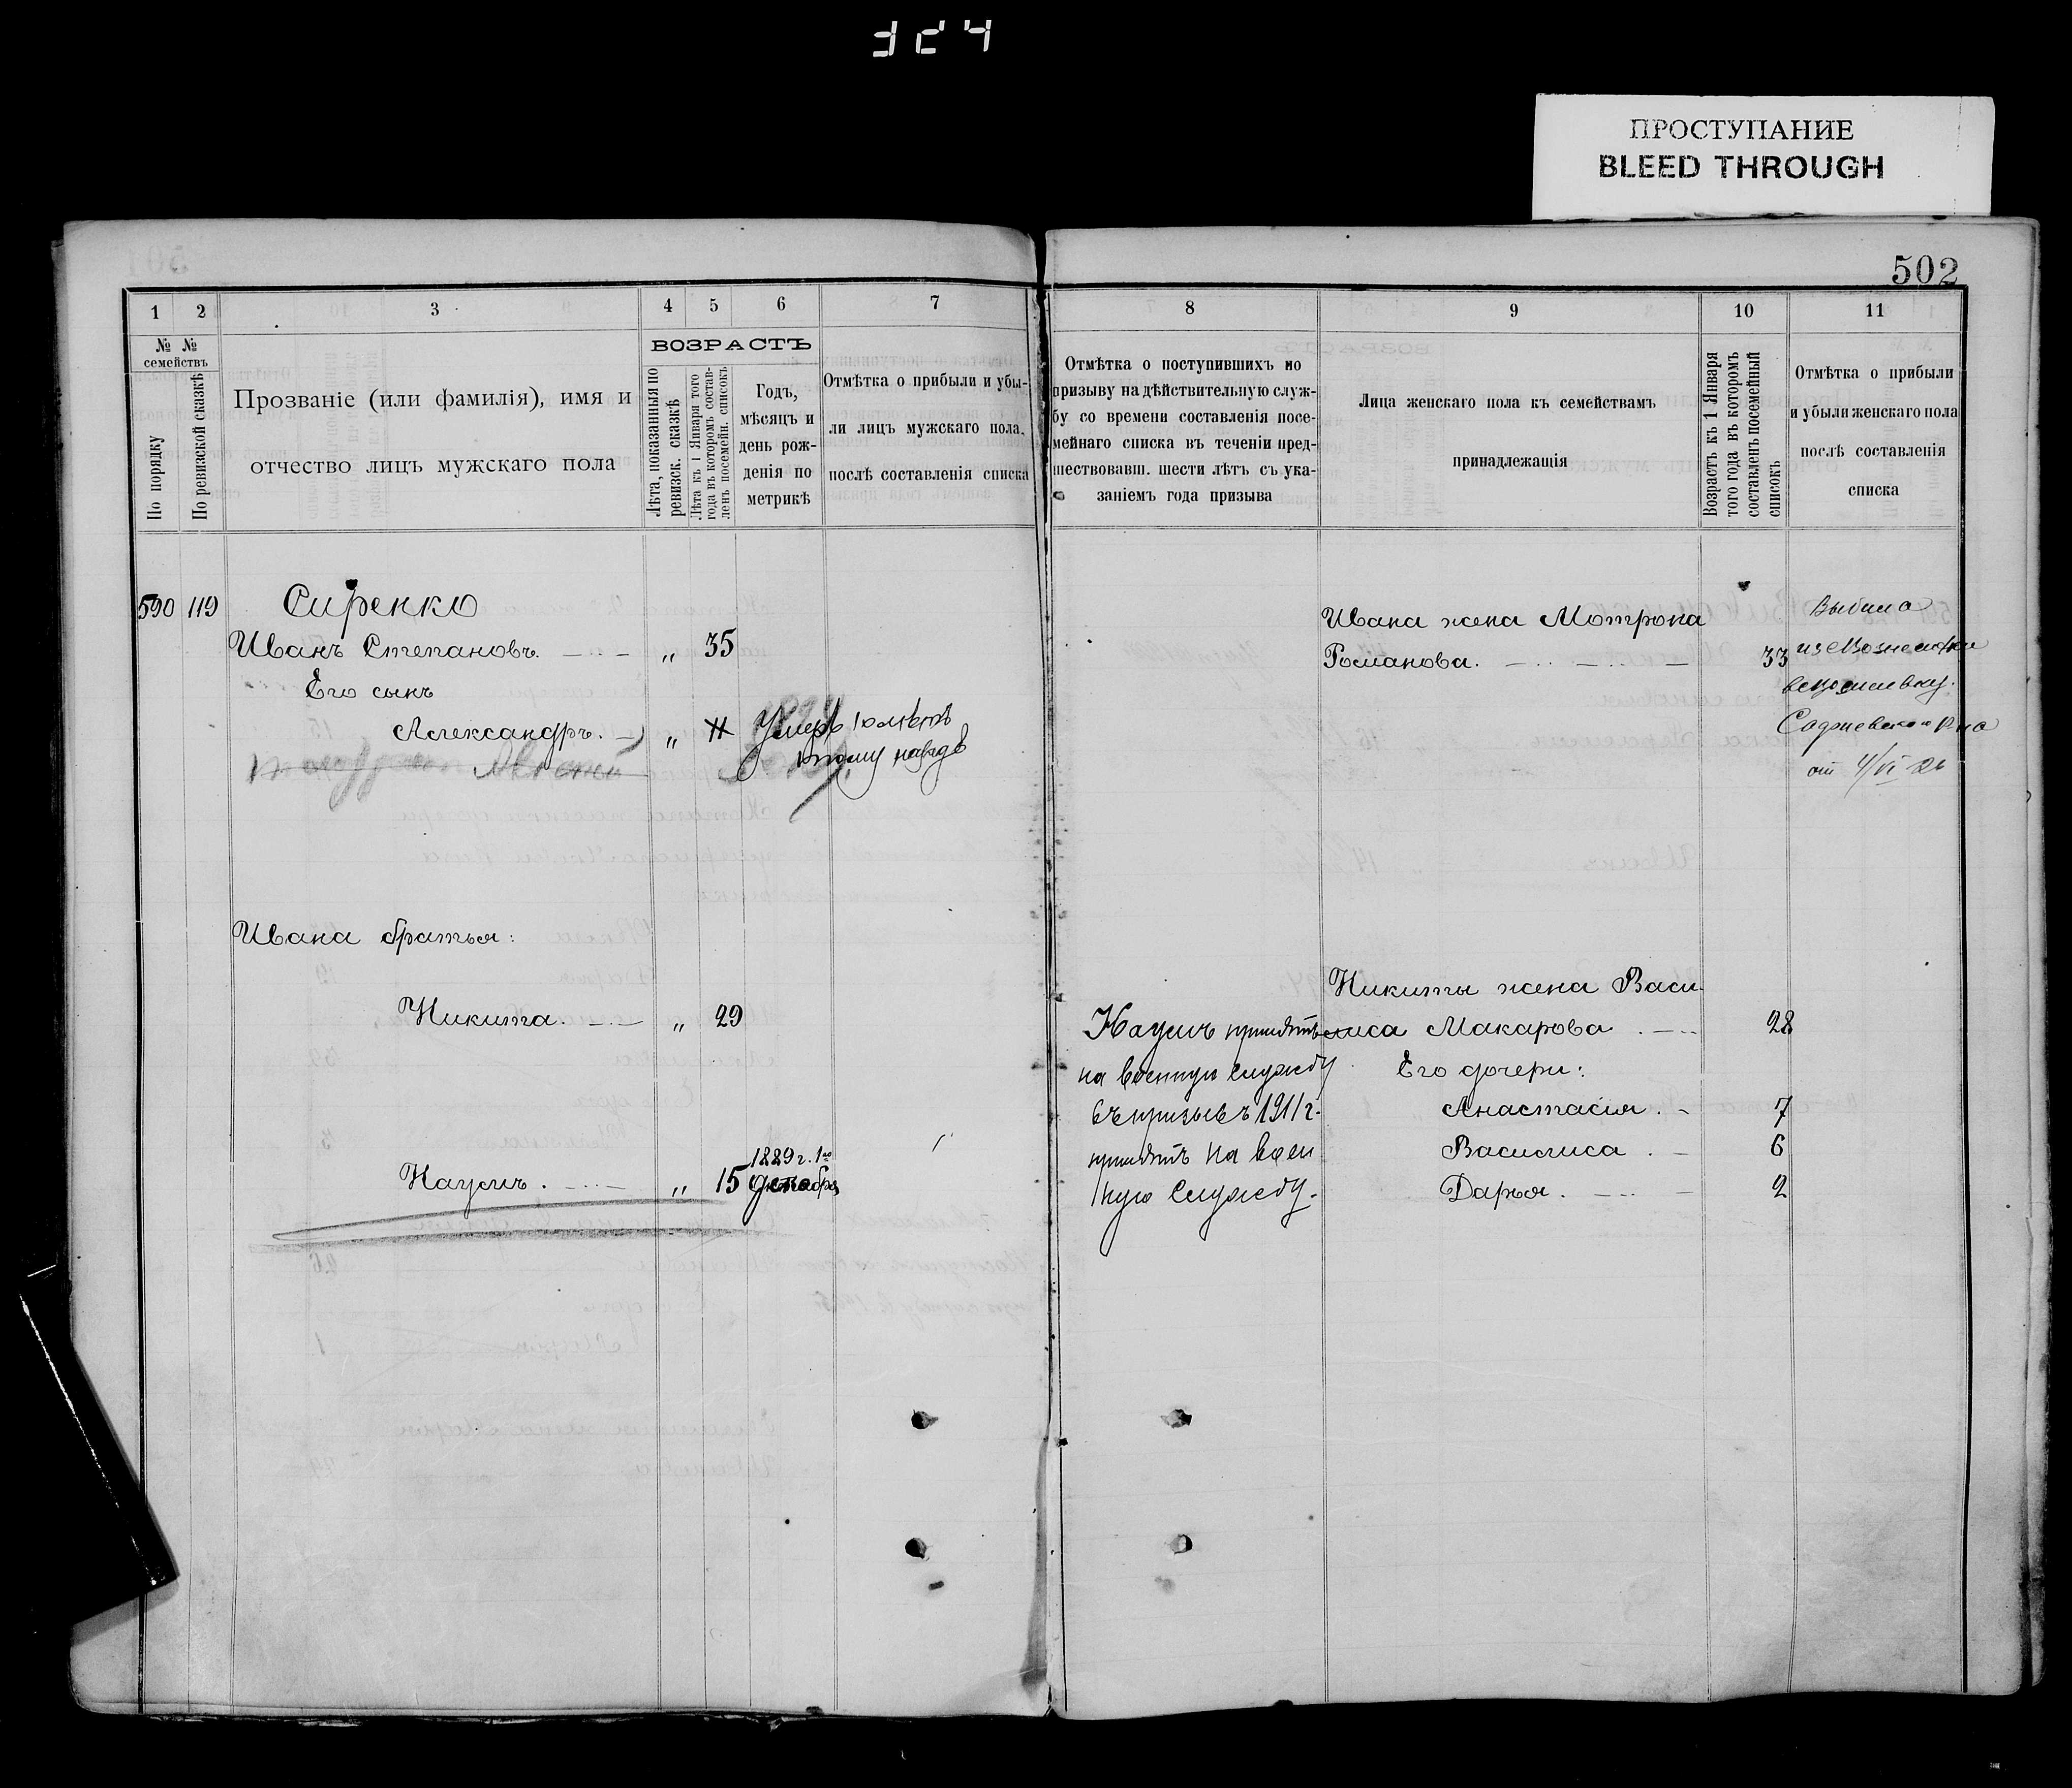 324
ПРОСТУПАНИЕ
BLEED THROUGH
502
1 2 3 4 5 6 7
№ № семействъ
По порядку
По ревизской сказкѣ
Прозваніе (или фамилія), имя и
отчество лицъ мужскаго пола
ВОЗРАСТЪ
Лѣта, показанныя по
ревизск. сказкѣ
Лѣта къ 1 Января того
года въ которомъ состав-
ленъ посемейн. списокъ
Годъ,
мѣсяцъ и
день рож-
денія по
метрикѣ
Отмѣтка о прибыли и убы-
ли лицъ мужскаго пола,
послѣ составленія списка
590 119 Сиренко
Иванъ Степановъ. „ 35
Его сынъ
Александръ. „ Умеръ 10 лѣтъ
тому назадъ
Ивана братья:
Никита. „ 29
1889 г. 1го
Наумъ. „ 15
8 9 10 11
Отмѣтка о поступившихъ по
призыву на дѣйствительную служ-
бу со времени составленія посе-
мейнаго списка въ теченіи пред-
шествовавш. шести лѣтъ съ ука-
заніемъ года призыва
Лица женскаго пола къ семействамъ
принадлежащія
Возрастъ къ 1 Января
того года въ которомъ
составленъ посемейный
списокъ
Отмѣтка о прибыли
и убыли женскаго пола
послѣ составленія
списка
Ивана жена Мотрона
Романова. 33
Выбыла
от 4/VI 26
Никиты жена Васи-
лиса Макарова. 28
Его дочери:
Анастасія. 7
Василиса. 6
Дарья. 2
Наумъ принятъ
на военную службу
въ призывъ 1911 г.
принятъ на воен
ную службу.